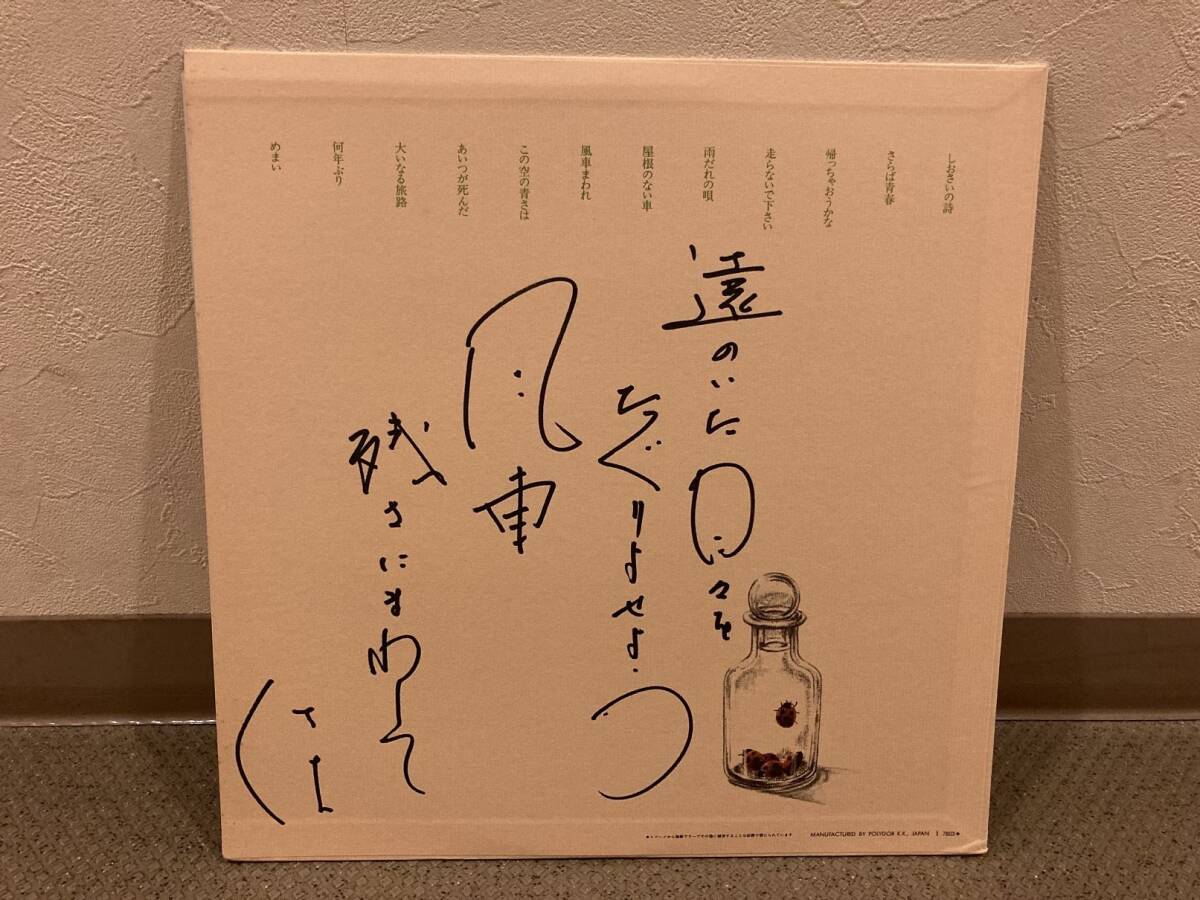 しおさいの詩
さらば青春
帰っちゃおうかな
走らないで下さい
雨だれの唄
屋根のない車
風車まわれ
この空の青さは
あいつが死んだ
大いなる旅路
何年ぶり
めまい
遠のいた日々を
たぐりよせよう
風車
残さにまわして
佳
MANUFACTURED BY POLYDOR K.K., JAPAN